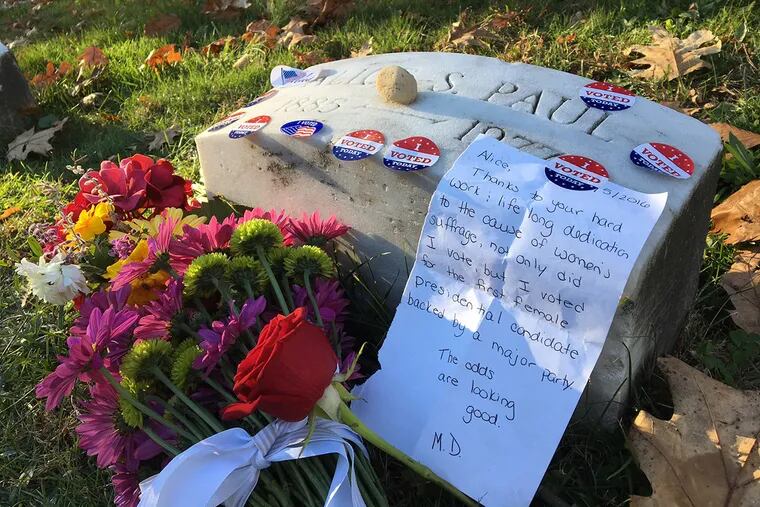 S PAUL
1885
197
I
VOTED
TODAY
I
VOTED
I VOTED
I
VOTED
TODAY
I
VOTED
TODAY
I
VOTED
TODAY
I
VOTED
TODAY
5/2016
Alice,
Thanks to your hard
work & life long dedication
to the cause of women's
suffrage, not only did
I vote, but I voted
for the first female
presidential candidate
backed by a major party.
The odds
are looking
good.
M.D